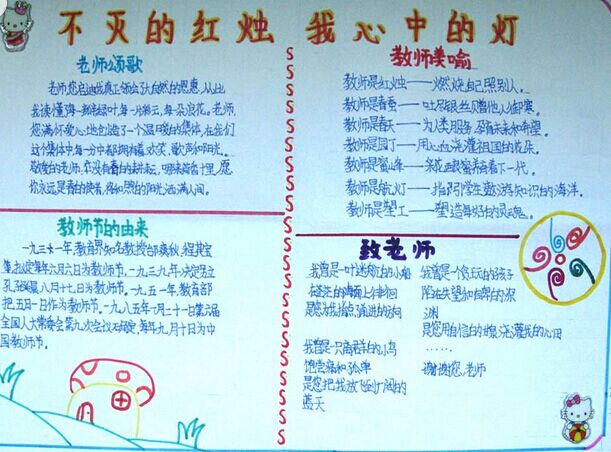 不灭的红烛 我心中的灯
老师颂歌
老师,您启迪我真正领会了大自然的恩惠,从此
我读懂了每一瓣绿叶,每一片彩云,每一朵浪花。老师,
您满怀爱心地创造了一个温暖的集体,在我们
这个集体中每一分中都拥有着欢笑、歌声和阳光。
敬爱的老师,
你永远是春的使者,宛如照的阳光洒满人间。
教师美喻
教师是红烛——燃烧自己照别人。
教师是春蚕——吐尽银丝只赠他人御寒。
教师是春天——为人类服务,孕育未来和希望。
教师是园丁——用心血浇灌祖国的花朵。
教师是蜜蜂——采花酿蜜养育下一代。
教师是航灯——指引学生遨游知识的海洋。
教师是塑工——塑造美好的灵魂。
教师节的由来
一九三一年,教育界知名教授邰爽秋、程其宝
等,拟定每年六月六日为教师节。一九三九年,决定另立
孔子诞辰八月廿七日为教师节。一九五一年,教育部
把五月一日作为教师节。一九八五年一月二十一日第六届
全国人大常委会第九次会议决定,每年九月十日为中
国教师节。
致老师
我曾是一叶迷航的小船
在茫茫的海面上徘徊
是您为我指点前进的方向
我曾是一只离群的小鸟
饱尝痛和孤单
是您把我放飞到广阔的
蓝天
我曾是个忧天的孩子
陷在失望和自卑的深
渊
是您用自信的甘泉,浇灌我的心田
……
谢谢您,老师